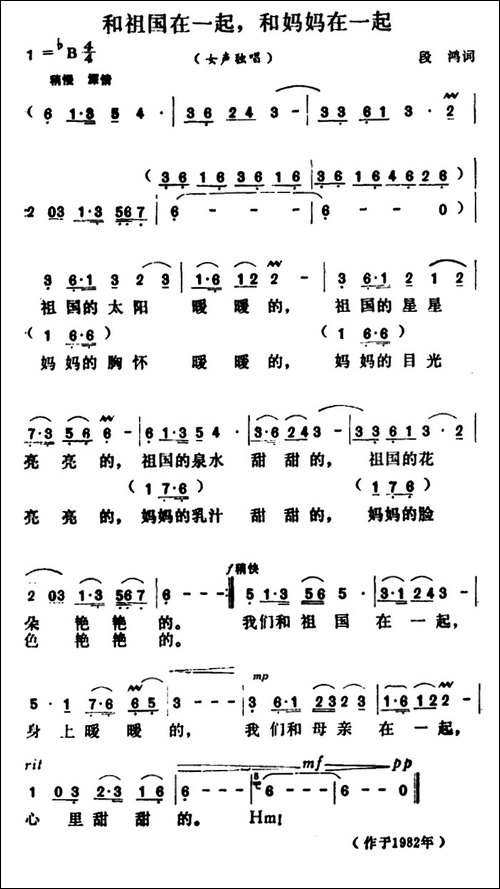 和祖国在一起，和妈妈在一起
1 = ♭B 4/4
（女声独唱）
段 鸿词
稍慢 深情
( 6 1·3 5 4 · | 3 6 2 4 3 - | 3 3 6 1 3 · 2 |
( 3 6 1 6 3 6 1 6 | 3 6 1 6 4 6 2 6 )
2 0 3 1·3 5 6 7 | 6 - - - | 6 - - 0 ) |
3 6·1 3 2 3 | 1·6 1 2 2 - | 3 6·1 2 1 2 |
祖 国的 太 阳 暖 暖 的， 祖 国的 星 星
( 1 6·6 ) ( 1 6·6 )
妈 妈的 胸 怀 暖 暖 的， 妈 妈的 目 光
7·3 5 6 6 - | 6 1·3 5 4 · | 3·6 2 4 3 - | 3 3 6 1 3 · 2 |
亮 亮 的， 祖国的泉水 甜 甜 的， 祖国的花
( 1 7·6 ) ( 1 7 6 )
亮 亮 的， 妈妈的乳汁 甜 甜 的， 妈妈的脸
f 稍快
2 0 3 1·3 5 6 7 | 6 - - - :‖ 5 1·3 5 6 5 · | 3·1 2 4 3 - |
朵 艳 艳 的。 我们和 祖 国 在 一 起，
色 艳 艳 的。
mp
5 · 1 7·6 6 5 | 3 - - - | 3 6·1 2 3 2 3 | 1·6 1 2 2 - |
身 上 暖 暖 的， 我 们和 母 亲 在 一 起，
rit mf pp
1 0 3 2·3 1 6 | 6 - - - | 6 - - - | 6 - - 0 ‖
心 里 甜 甜 的。 Hm!
（作于1982年）